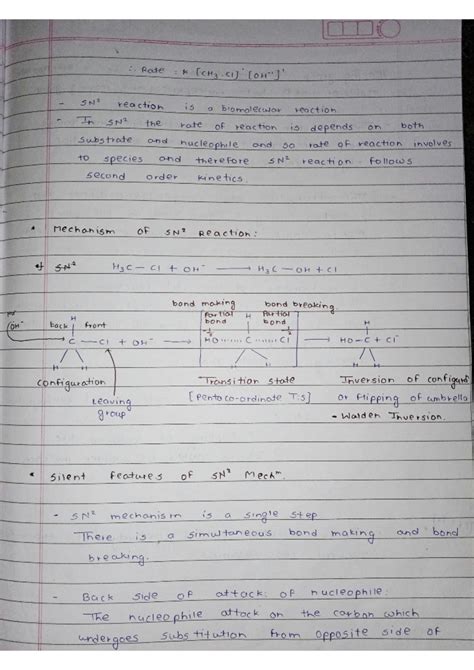 ∴ Rate : K [CH3 Cl]¹ [OH⁻]¹
- SN² reaction is a biomolecular reaction
- In SN² the rate of reaction is depends on both
substrate and nucleophile and so rate of reaction involves
to species and therefore SN² reaction follows
second order kinetics.
* Mechanism of SN² Reaction:
SN² H3C - Cl + OH⁻ → H3C - OH + Cl
bond making bond breaking
H Partial bond H Partial bond H
OH⁻ back front
C - Cl + OH⁻ → HO ...... C ...... Cl → HO - C + Cl⁻
H H H H H H
configuration Transition state Inversion of configura
Leaving group [Penta co-ordinate T.S] or flipping of umbrella
- Walden Inversion.
* Silent features of SN² Mechⁿ.
- SN² mechanism is a single step
There is a simultaneous bond making and bond
breaking.
- Back side of attack of nucleophile:
The nucleophile attack on the carbon which
undergoes substitution from opposite side of